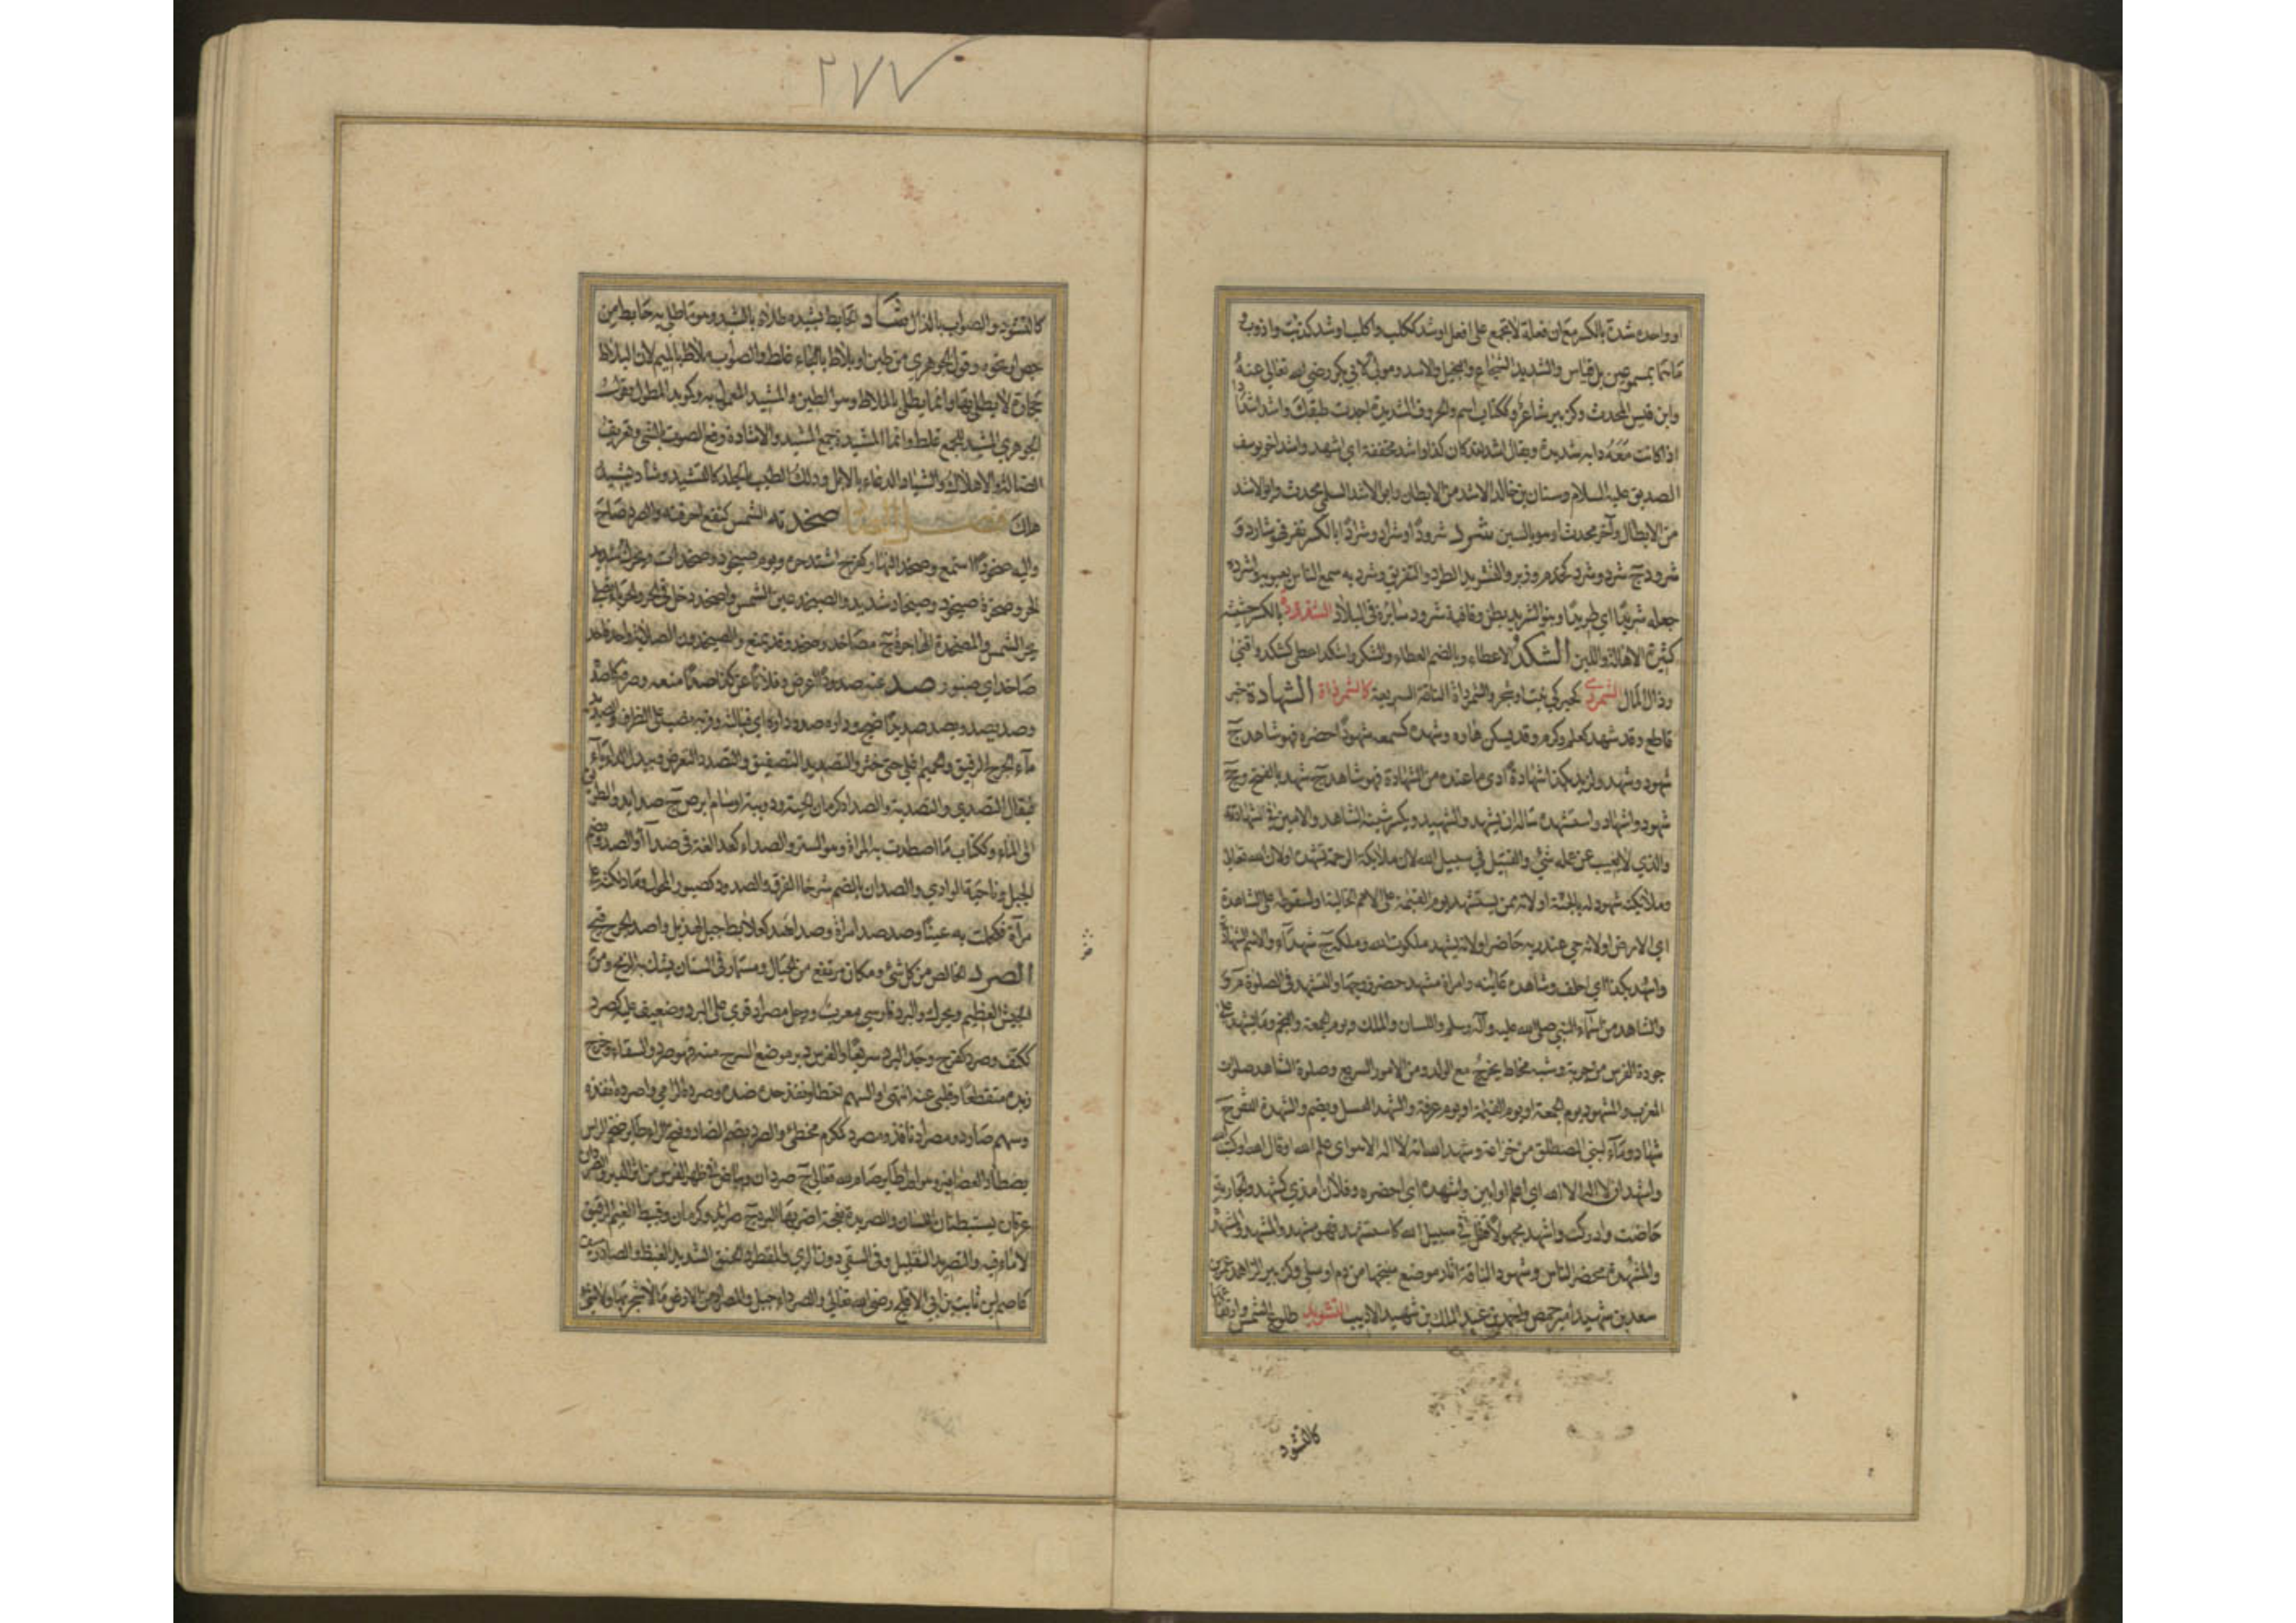 ٢٧٧
او واحده شدة بالكسر مع ان فعلة لا تجمع على افعل او شد ككلب واكلب او شد كذئب واذوب و
ما هما بمسموعين بل قياس والشديد الشجاع والبخيل والاسد ومولى لابي بكر رضي الله تعالى عنه
وابن قيس المحدث وكزبير شاعر وككتاب اسم والحروف الشديدة اجدت طبقك واشد اشدادا
اذا كانت معه دابة شديدة ويقال اشد لقد كان كذا واشد مخففة اي اشهد واشد اخو يوسف
الصديق عليه السلام وسنان بن خالد الاشد من الابطال وابن الاشد السلمي محدث وابو الاشد
من الابطال وآخر محدث او هو بالسين شرد شرودا وشرادا وشرادا بالكسر نفر فهو شارد و
شرود ج شرد وشرد كخدم وزبر والتشريد الطرد والتفريق وشرد به سمع الناس بعيوبه واشرده
جعله شريدا اي طريدا وبنو الشريد بطن وقافية شرود سائرة في البلاد الشقردة بالكسر حشيشة
كثيرة الاهالة واللبن الشكد الاعطاء وبالضم العطاء والشكر واشكد اعطى كشكد واقتنى
رذال المال الشمردى كحبركى نبت او شجر والشمرداة الناقة السريعة كالشمرذاة الشهادة خبر
قاطع وقد شهد كعلم وكرم وقد يسكن هاؤه وشهده كسمعه شهودا حضره فهو شاهد ج
شهود وشهد ولزيد بكذا شهادة ادى ما عنده من الشهادة فهو شاهد ج شهد بالفتح وجج
شهود واشهاد واستشهده ساله ان يشهد والشهيد ويكسر شينه الشاهد والامين في شهادته
والذي لا يغيب عن علمه شيء والقتيل في سبيل الله لان ملائكة الرحمة تشهده او لان الله تعالى
وملائكته شهود له بالجنة او لانه ممن يستشهد يوم القيمة على الامم الخالية او لسقوطه على الشاهدة
اي الارض او لانه حي عند ربه حاضر او لانه يشهد ملكوت الله وملكه ج شهداء والاسم الشهادة
واشهد بكذا اي احلف وشاهده عاينه وامراة مشهد حضر زوجها والتشهد في الصلوة م و
والشاهد من اسماء النبي صلى الله عليه وآله وسلم واللسان والملك ويوم الجمعة والنجم وما يشهد على
جودة الفرس من جريه وشبه مخاط يخرج مع الولد ومن الامور السريع وصلوة الشاهد صلوة
المغرب والمشهود يوم الجمعة او يوم القيمة او يوم عرفة والشهد العسل ويضم والشهدة اخص ج
شهاد وماء لبني المصطلق من خزاعة وشهد الله انه لا اله الا هو اي علم الله او قال الله او كتب الله
واشهد ان لا اله الا الله اي اعلم او ابين واشهده اي احضره وفلان امذى كشهد والجارية
حاضت وادركت واشهد مجهولا قتل في سبيل الله كاستشهد فهو مشهد والمشهد والمشهدة
والمشهدة محضر الناس وشهود الناقة آثار موضع منتجها من دم او سلى وكزبير الزاهد عمر بن
سعد بن شهيد امير حمص واحمد بن عبد الملك بن شهيد الاديب التشويد طلوع الشمس وارتفاعها
كالتشود
كالتشود والصواب بالذال شاد الحائط يشيده طلاه بالشيد وهو ما طلي به حائط من
جص او نحوه وقول الجوهري من طين او بلاط بالباء غلط والصواب ملاط بالميم لان البلاط
حجارة لا يطلى بها وانما يطلى بالملاط وهو الطين والمشيد المعمول به وكمؤيد المطول وقول
الجوهري المشيد للجمع غلط وانما المشيدة جمع المشيد والاشادة رفع الصوت بالشيء وتعريف
الضالة والاهلاك والشياد الدعاء بالابل ودلك الطيب بالجلد كالتشييد وشاد يشيد
هلك فصل الصاد صخدته الشمس كمنع احرقته والصرد صاح
واليه صخودا استمع وصخد النهار كفرح اشتد حره ويوم صيخود وصخدان ويحرك شديد
الحر وصخرة صيخود وصيخاد شديد والصيخد عين الشمس واصخد دخل في الحر والحرباء تصلى
بحر الشمس والمصخدة الهاجرة ج مصاخد وصخد وقد يمنع والصيخدون الصلابة وواحد قاحد
صاخد اي صنبور صد عنه صدودا اعرض وفلانا عن كذا صدا منعه وصرفه كاصده
وصد يصد ويصد صديدا ضج وداره صدد داره اي قبالته وقربه نصب على الظرف والصديد
ماء الجرح الرقيق والحميم اغلي حتى خثر والتصديد التصفيق والتصدد التعرض وتبدل الدال ياء
فيقال التصدي والتصدية والصداد كرمان الحية ودويبة او سام ابرص ج صدائد والطريق
الى الماء وككتاب ما اصطدت به المراة وهو الستر والصداء كعداء لغة في صدآء والصد ويضم
الجبل وناحية الوادي والصدان بالضم شرخا الفوق والصدود كصبور المجول وما دلكته على
مرآة فكحلت به عينا وصدصد امراة وصداصد كعلابط جبل لهذيل واصد الجرح قيح
الصرد الخالص من كل شيء ومكان مرتفع من الجبال ومسمار في السنان يشك به الرمح ومن
الجيش العظيم ويحرك والبرد فارسي معرب ورجل مصراد قوي على البرد وضعيف عليه كصرد
ككتف وصرد كفرح وجد البرد سريعا والفرس دبر موضع السرج منه فهو صرد والسقاء خرج
زبده متقطعا وقلبي عنه انتهى والسهم اخطا ونفذ حده ضد وصرده الرامي واصرده انفذه
وسهم صارد ومصراد نافذ ومصرد كمكرم مخطئ والصرد بضم الصاد وفتح الراء طائر ضخم الراس
يصطاد العصافير وهو اول طائر صام لله تعالى ج صردان وبياض في ظهر الفرس من اثر الدبر والصردان
عرقان يستبطنان اللسان والصريدة نعجة اضر بها البرد ج صرائد وكرمان وقبيط الغيم الرقيق
لا ماء فيه والتصريد التقليل وفي السقي دون الري والمقطر والمحنق الشديد الغيظ والصارد سيف
عاصم بن ثابت بن ابي الاقلح رضي الله تعالى عنه والصرداء جبل والمصراد من الارض ما لا شجر بها ولا شيء